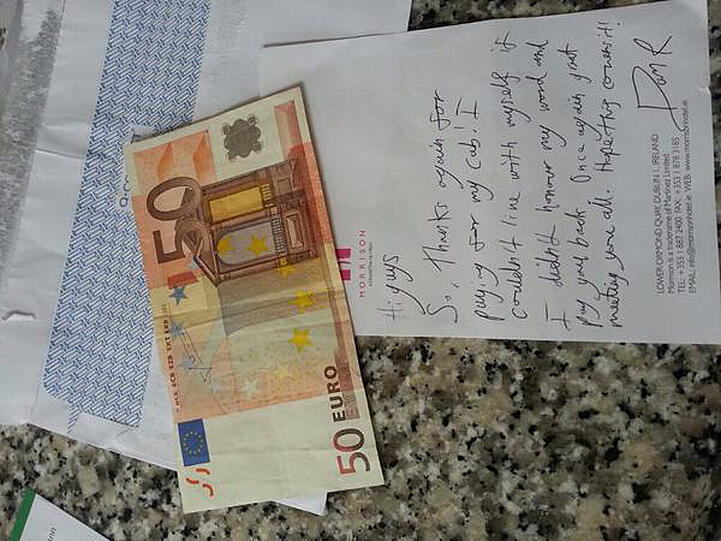 MORRISON
Hi guys
So, thanks again for
paying for my cab! I
couldn't live with myself if
I didn't honour my word and
pay you back. Once again great
meeting you all. Hope this covers it!
Dan R
LOWER ORMOND QUAY, DUBLIN 1, IRELAND
Morrison is a trademark of Martinez Limited
TEL: +353 1 887 2400 FAX: +353 1 878 3185
EMAIL: info@morrisonhotel.ie WEB: www.morrisonhotel.ie
50
50 EURO